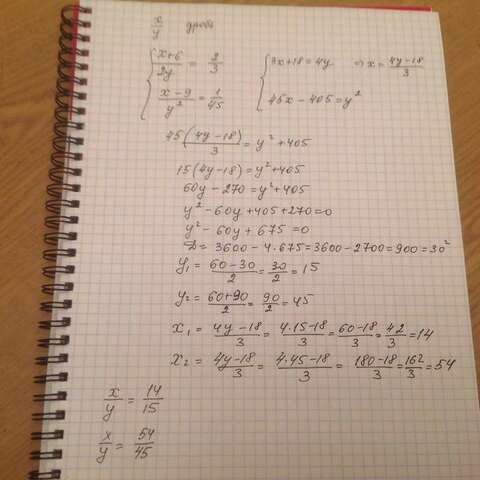 x/y дробь
{ (x+6)/2y = 2/3   { 3x+18=4y ⇒ x = (4y-18)/3
(x-9)/y² = 1/45   45x-405=y²
45(4y-18)/3 = y²+405
15(4y-18)=y²+405
60y-270=y²+405
y²-60y+405+270=0
y²-60y+675=0
D=3600-4·675=3600-2700=900=30²
y₁ = (60-30)/2 = 30/2 = 15
y₂ = (60+90)/2 = 90/2 = 45
x₁ = (4y-18)/3 = (4·15-18)/3 = (60-18)/3 = 42/3 = 14
x₂ = (4y-18)/3 = (4·45-18)/3 = (180-18)/3 = 162/3 = 54
x/y = 14/15
x/y = 54/45